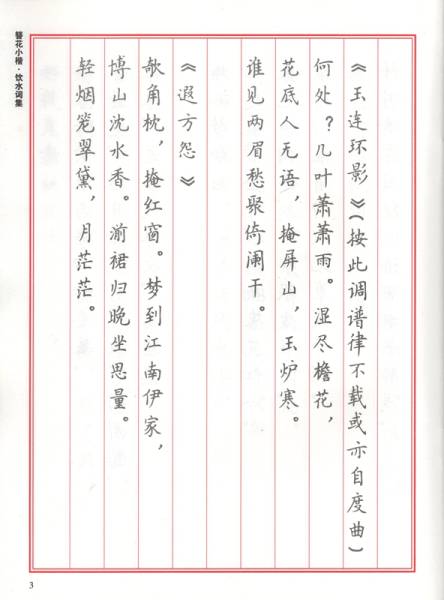 《玉连环影》(按此调谱律不载或亦自度曲)
何处?几叶萧萧雨。湿尽檐花,
花底人无语,掩屏山,玉炉寒。
谁见两眉愁聚倚阑干。
《遐方怨》
欹角枕,掩红窗。梦到江南伊家,
博山沈水香。湔裙归晚坐思量。
轻烟笼翠黛,月茫茫。
簪花小楷·饮水词集
3